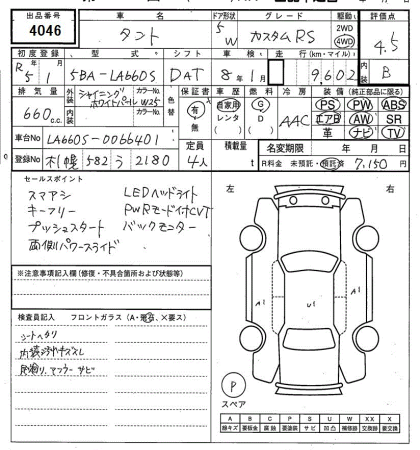 出品番号 車名 ドア形状 グレード 駆動 評価点
4046 タント 5 W カスタムRS 2WD 4WD 4.5
初度登録 型式 シフト 車検 走行(km・マイル) 内装
R5年1月 5BA-LA660S DAT 8年1月 9,602 B
排気量 外装 カラーNo. 色替 保証書 車歴 燃料 冷房 装備(純正部品に限る)
660c.c. シャイニングホワイトパール W25 有 自家用 G AAC PS PW ABS
内装 カラーNo. 無 レンタ D エアB AW SR
革 ナビ TV
車台No LA660S-0066401 定員 積載量 名変期限 年 月 日
登録No 札幌 582 う 2180 4人 t R料金 未預託・預託済 7,150円
セールスポイント
スマアシ LEDヘッドライト
キーフリー PWRモード付CVT
プッシュスタート バックモニター
両側パワースライド
左 右
※注意事項記入欄(修復・不具合箇所および状態等)
A1 U1 A1
検査員記入 フロントガラス(A・飛石、×要ス)
シートヘタリ
内装
マフラーサビ
P
スペア
A B C P S U W X XX
線キズ 要板金 腐蝕 要塗装 サビ 凹凸 補修跡 要交換